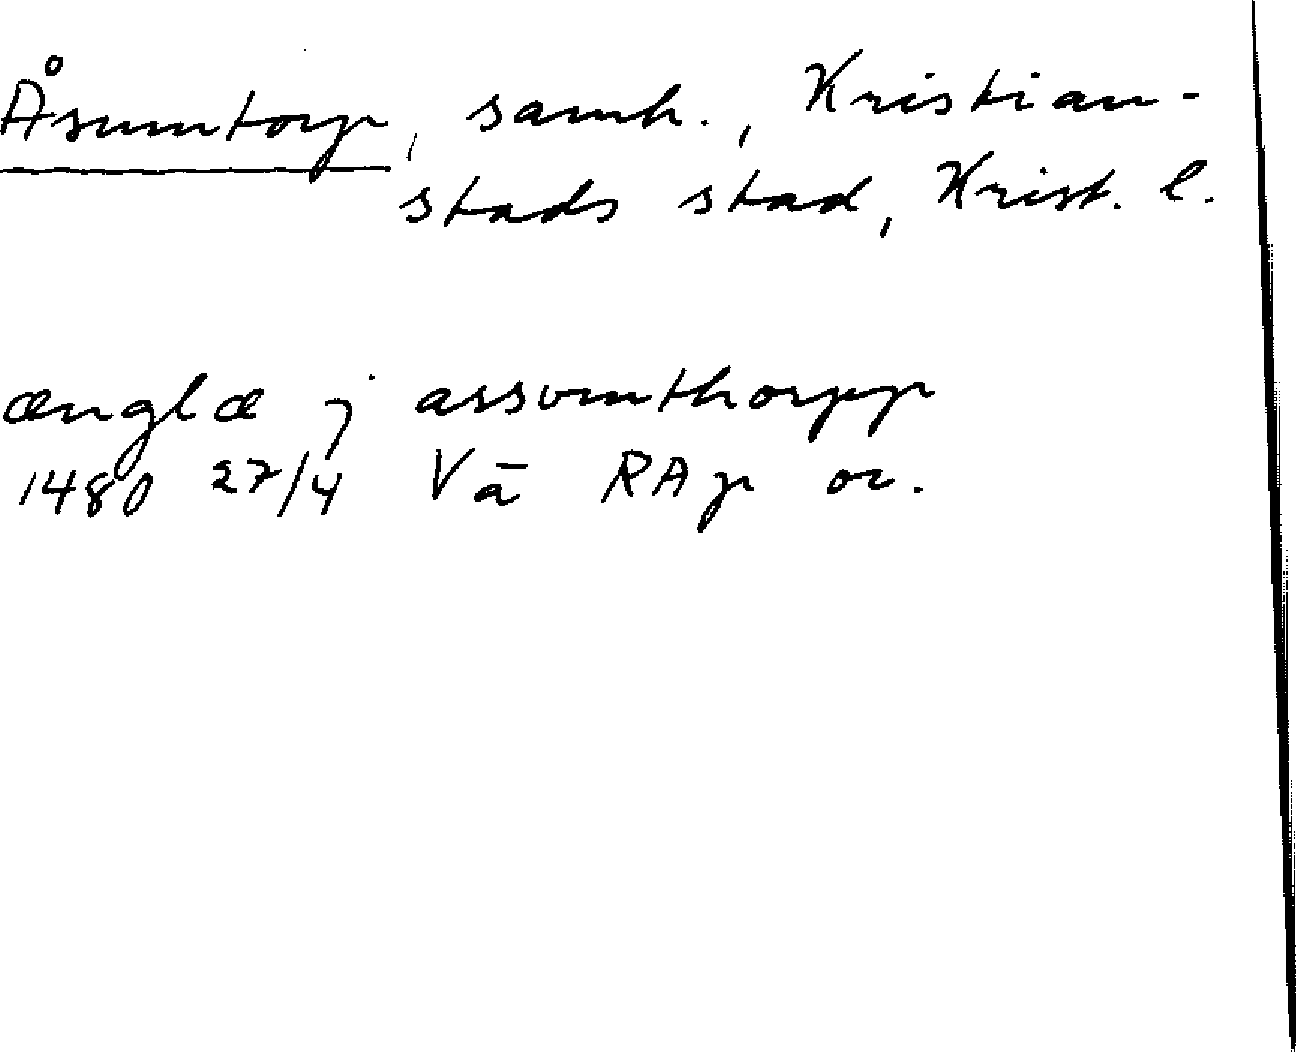 Åsumtorp, samh., Kristian-
stads stad, Krist. l.
ænglæ j assvmthorpp
1480 27/4 Vä RAp or.